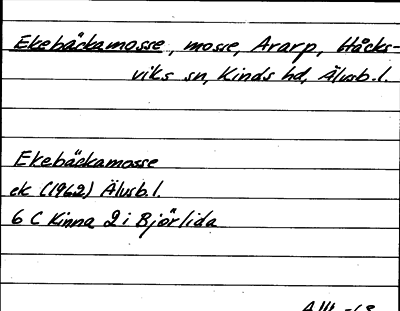 Ekebäckamosse, mosse, Ararp, Håcks-
viks sn, Kinds hd, Älvsb. l.
Ekebäckamosse
ek (1962) Älvsb. l.
6 C Kinna 2 i Björlida